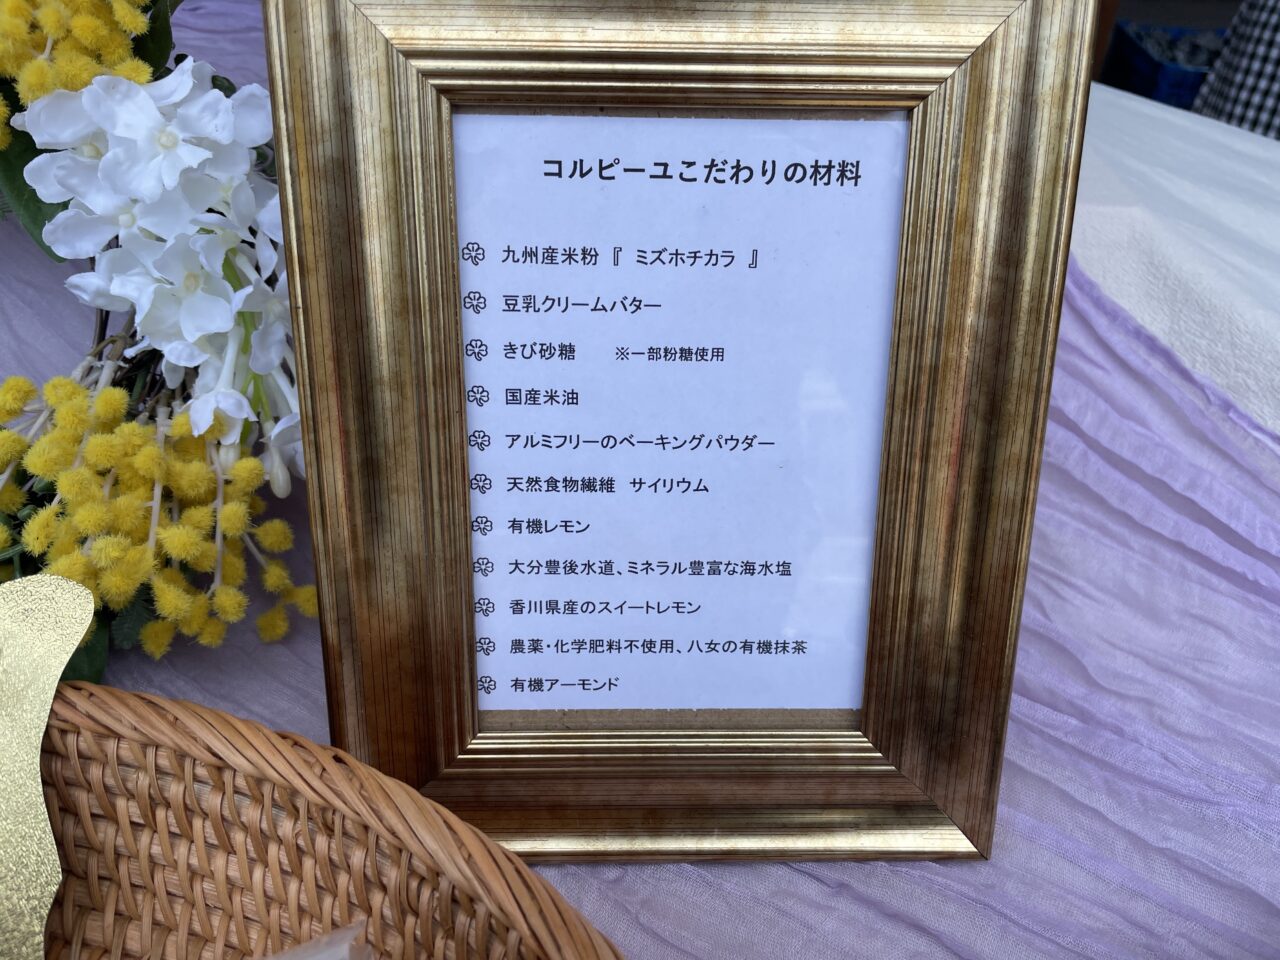 コルピーユこだわりの材料
九州産米粉『 ミズホチカラ 』
豆乳クリームバター
きび砂糖 ※一部粉糖使用
国産米油
アルミフリーのベーキングパウダー
天然食物繊維 サイリウム
有機レモン
大分豊後水道、ミネラル豊富な海水塩
香川県産のスイートレモン
農薬・化学肥料不使用、八女の有機抹茶
有機アーモンド